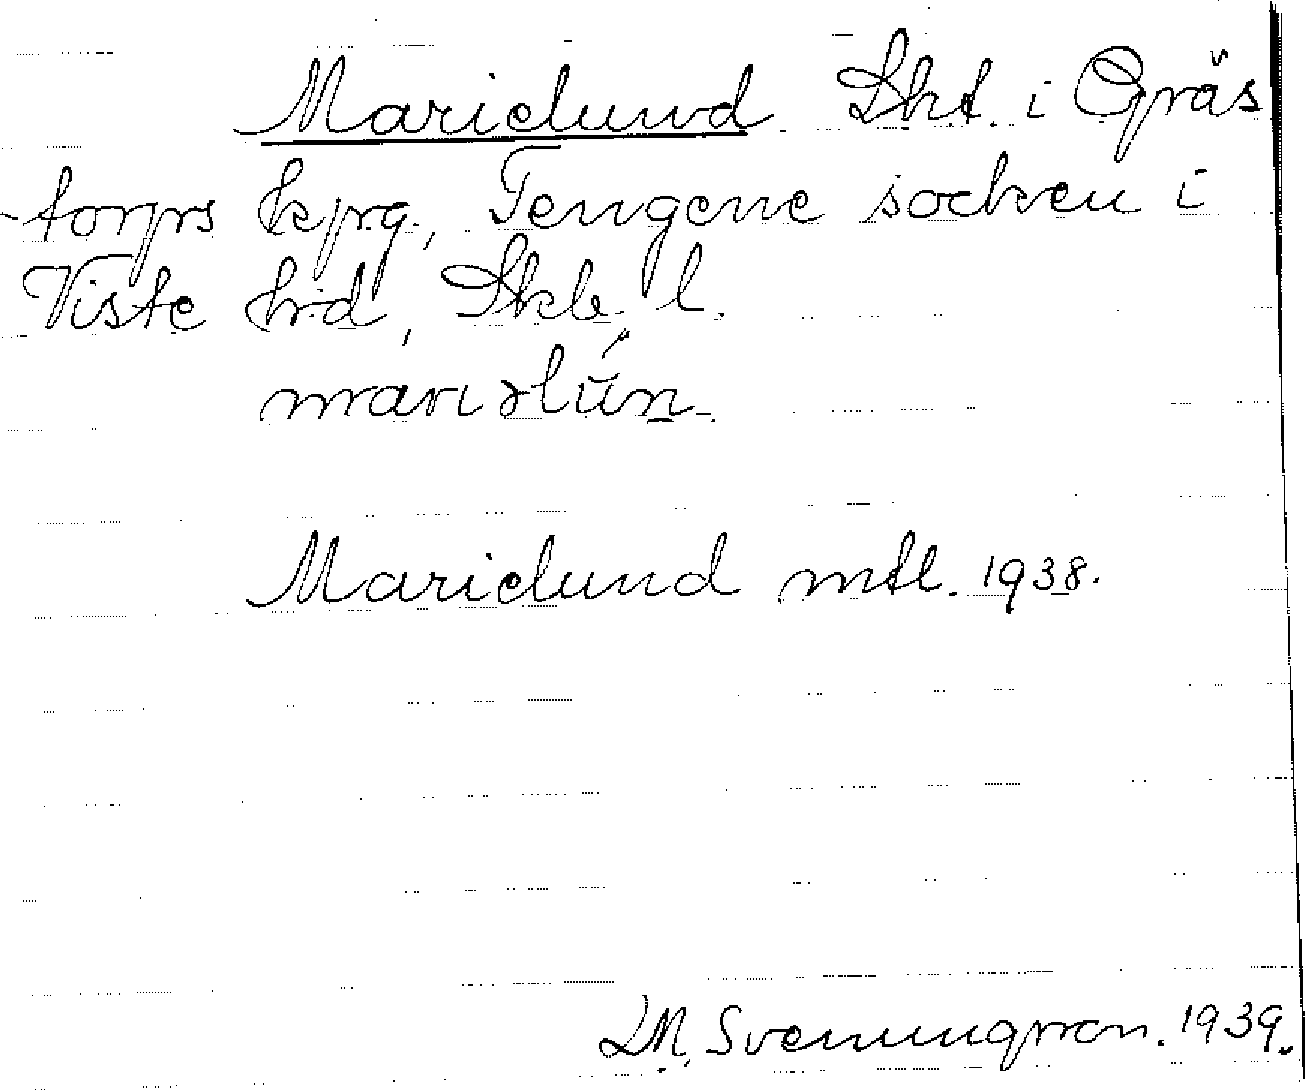 Marielund Skt. i Gräs
torps kpg., Tengene socken i
Viste hrd, Skb. l.
Marielund mtl. 1938.
Svenungsson. 1939.